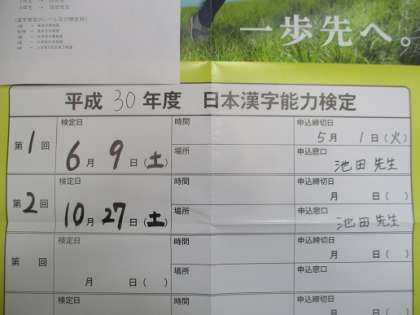 一歩先へ。
平成 30 年度 日本漢字能力検定
第1回 検定日 6月9日(土) 時間 場所 申込締切日 5月1日(火) 申込窓口 池田先生
第2回 検定日 10月27日(土) 時間 場所 申込締切日 月 日( ) 申込窓口 池田先生
第 回 検定日 月 日( ) 時間 場所 申込締切日 月 日( ) 申込窓口
検定日 時間 申込締切日